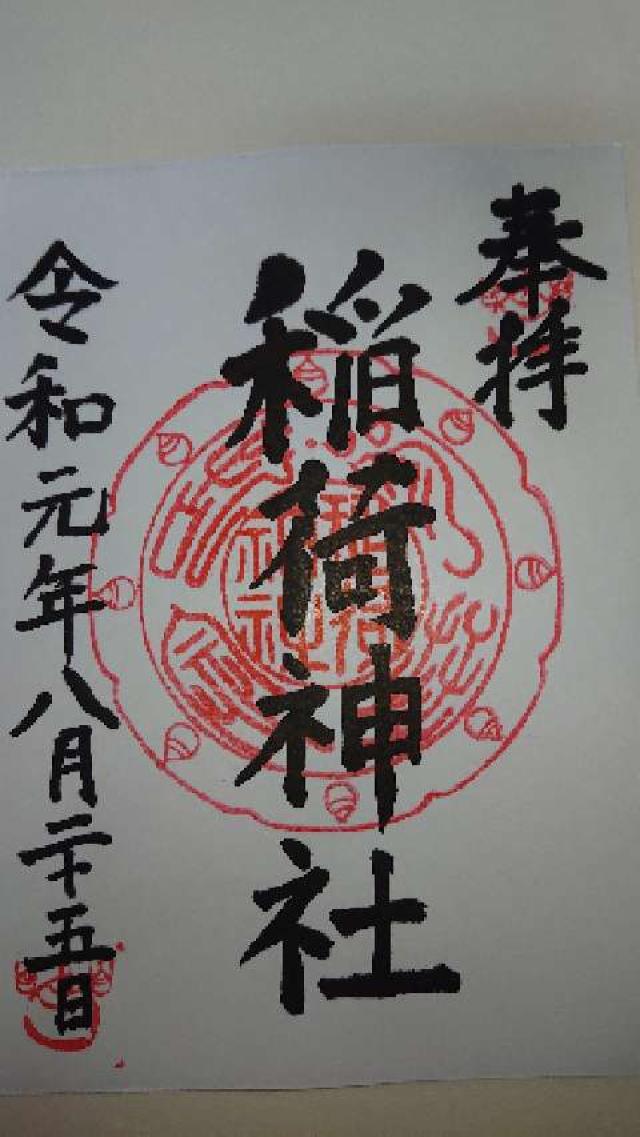 奉拝
稲荷神社
令和元年八月二十五日